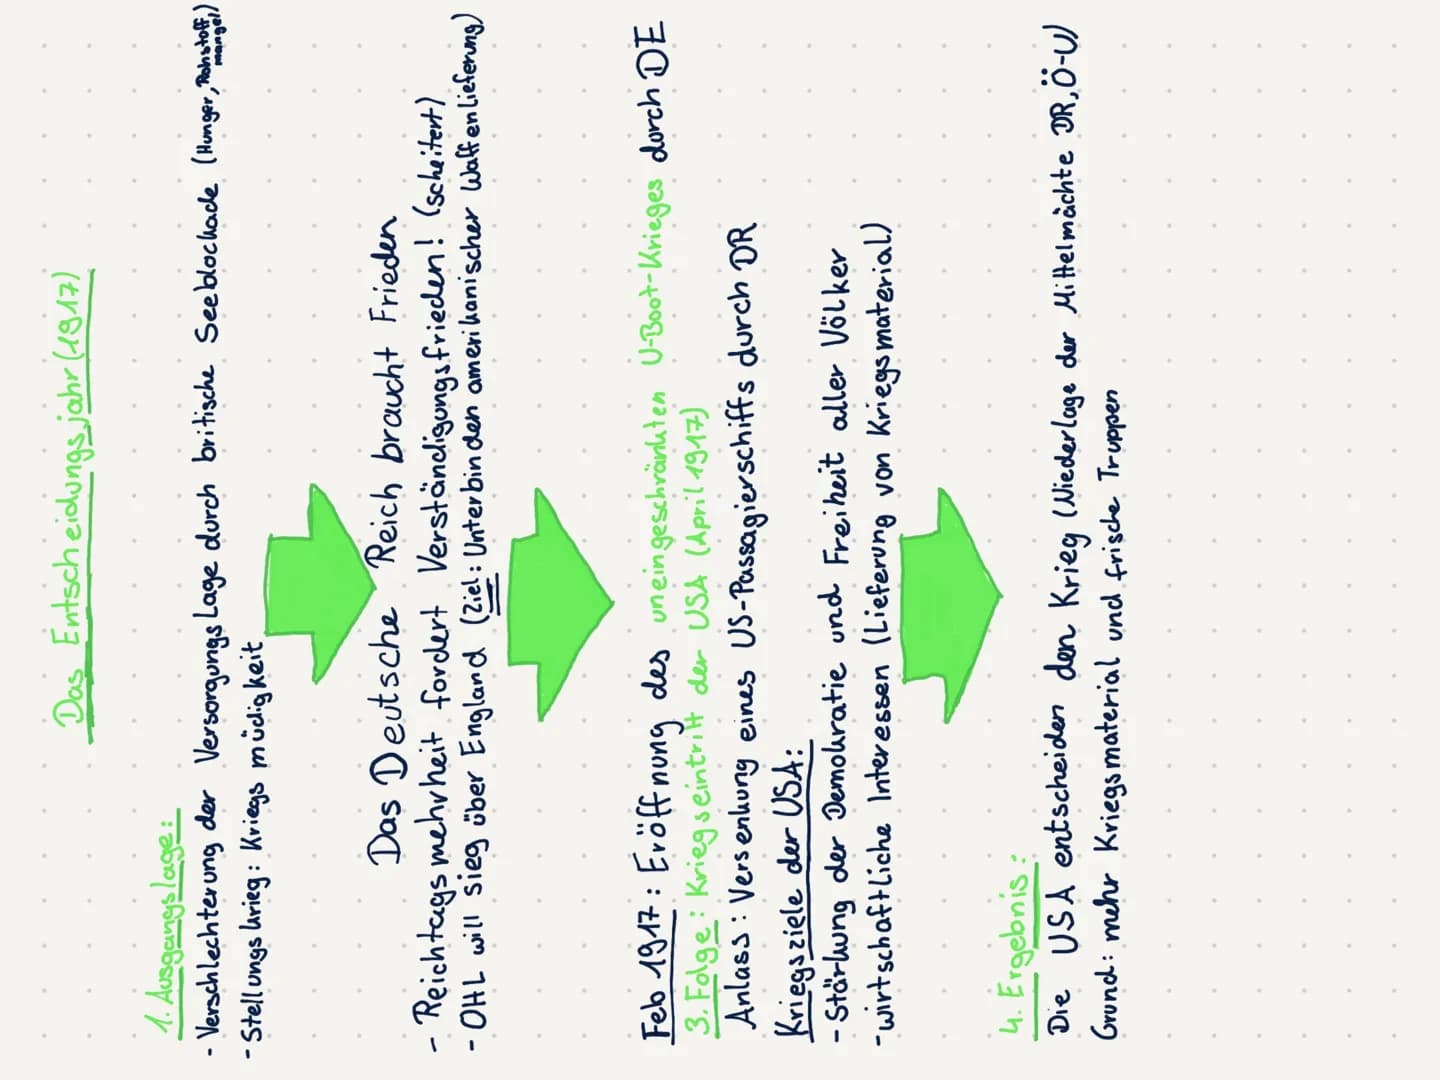 Das Entscheidungsjahr (1917)
1. Ausgangslage:
- Verschlechterung der Versorgungslage durch britische Seeblockade (Hunger, Rohstoffmangel)
- Stellungskrieg: Kriegsmüdigkeit
Das Deutsche Reich braucht Frieden
- Reichtagsmehrheit fordert Verständigungsfrieden! (scheitert)
- OHL will sieg über England (Ziel: Unterbinden amerikanischer Waffenlieferung)
Feb 1917: Eröffnung des uneingeschränkten U-Boot-Krieges durch DE
3. Folge: Kriegseintritt der USA (April 1917)
Anlass: Versenkung eines US-Passagierschiffs durch DR
Kriegsziele der USA:
- Stärkung der Demokratie und Freiheit aller Völker
- wirtschaftliche Interessen (Lieferung von Kriegsmaterial)
4. Ergebnis:
Die USA entscheiden den Krieg (Niederlage der Mittelmächte DR, Ö-U)
Grund: mehr Kriegsmaterial und frische Truppen